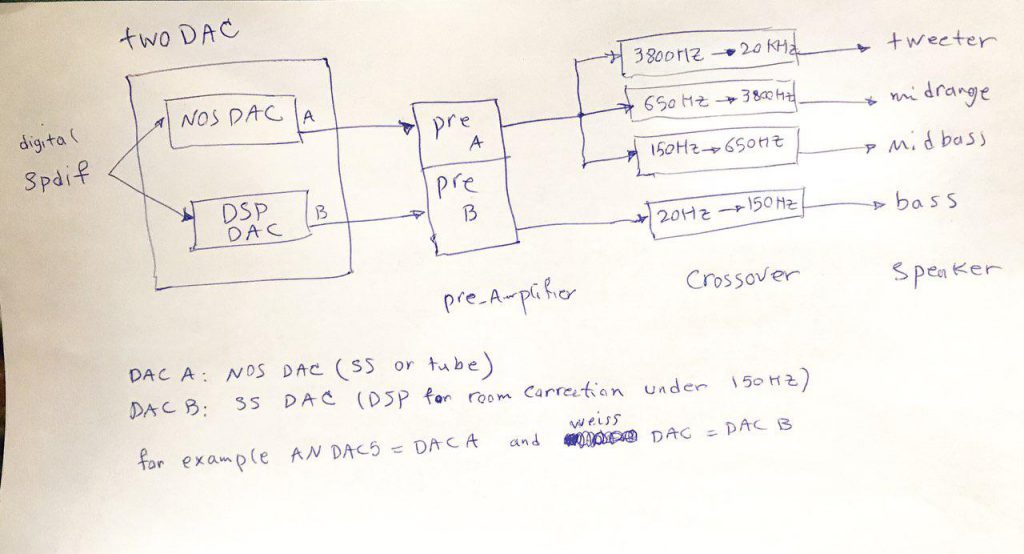 two DAC
digital
Spdif
NOS DAC
A
DSP
DAC
B
pre
A
pre
B
3800HZ → 20 KHz
650 Hz → 3800Hz
150Hz → 650HZ
20Hz → 150Hz
tweeter
midrange
Midbass
bass
pre-Amplifier
Crossover
Speaker
DAC A: NOS DAC (SS or tube)
DAC B: SS DAC (DSP for room correction under 150HZ)
weiss
for example AN DAC5 = DAC A and DAC = DAC B